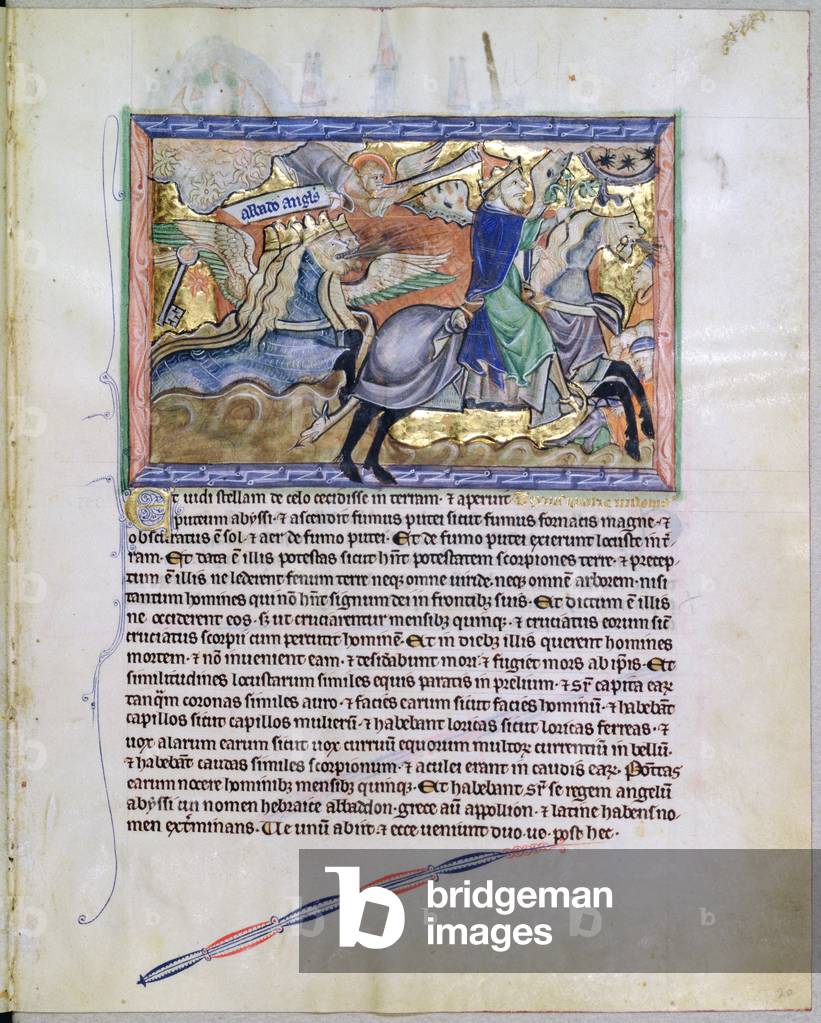 abbado angls
Et uidi stellam de celo cecidisse in terram · ⁊ aperuit
puteum abyssi · ⁊ ascendit fumus putei sicut fumus fornacis magne · ⁊
obscuratus ē sol · ⁊ aer de fumo putei · Et de fumo putei exierunt locuste in t̄
ram · Et data ē illis potestas sicut hn̄t potestatem scorpiones terre · ⁊ precep-
tum ē illis ne lederent fenum terre neqꝫ omne uiride · neqꝫ omnē arborem · nisi
tantum homines qui nō hn̄t signum dei in frontibꝫ suis · Et dictum ē illis
ne occiderent eos · sꝫ ut cruciarentur mensibꝫ quinqꝫ · ⁊ cruciatus eorum sic̄
cruciatus scorpii cum percutit hominē · Et in diebꝫ illis querent homines
mortem · ⁊ nō inuenient eam · ⁊ desid̄abunt mori · ⁊ fugiet mors ab ip̄is · Et
similitudines locustarum similes equis paratis in prelium · ⁊ sr̄ capita eaꝝ
tanq̄m coronas similes auro · ⁊ facies earum sicut facies hominū · ⁊ habebāt
capillos sicut capillos mulierū · ⁊ habebant loricas sicut loricas ferreas · ⁊
uox alarum earum sicut uox curruū equorum multoꝝ currentiū in bellū ·
⁊ habebāt caudas similes scorpionum · ⁊ aculei erant in caudis eaꝝ · Po̅t̅tas
earum nocere hominibꝫ mensibꝫ quinqꝫ · Et habebant sr̄ se regem angelū
abyssi cui nomen hebraice abbadon · grece aū appollion · ⁊ latine habens no-
men ext̄minans · Ue unū abiit · ⁊ ecce ueniunt duo ue · post hec ·
b bridgeman
images
20